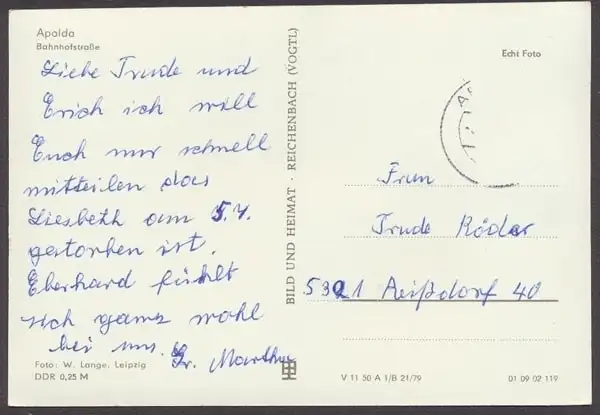 Apolda
Bahnhofstraße
Liebe Trude und
Erich ich will
Euch nur schnell
mitteilen das
Liesbeth am 5.4.
gestorben ist.
Eberhard fühlt
sich ganz wohl
bei uns. Gr. Martha
Foto: W. Lange, Leipzig
DDR 0,25 M
BILD UND HEIMAT · REICHENBACH (VOGTL)
Echt Foto
Frau
Trude Röder
5321 Reißdorf 40
V 11 50 A 1/B 21/79
01 09 02 119